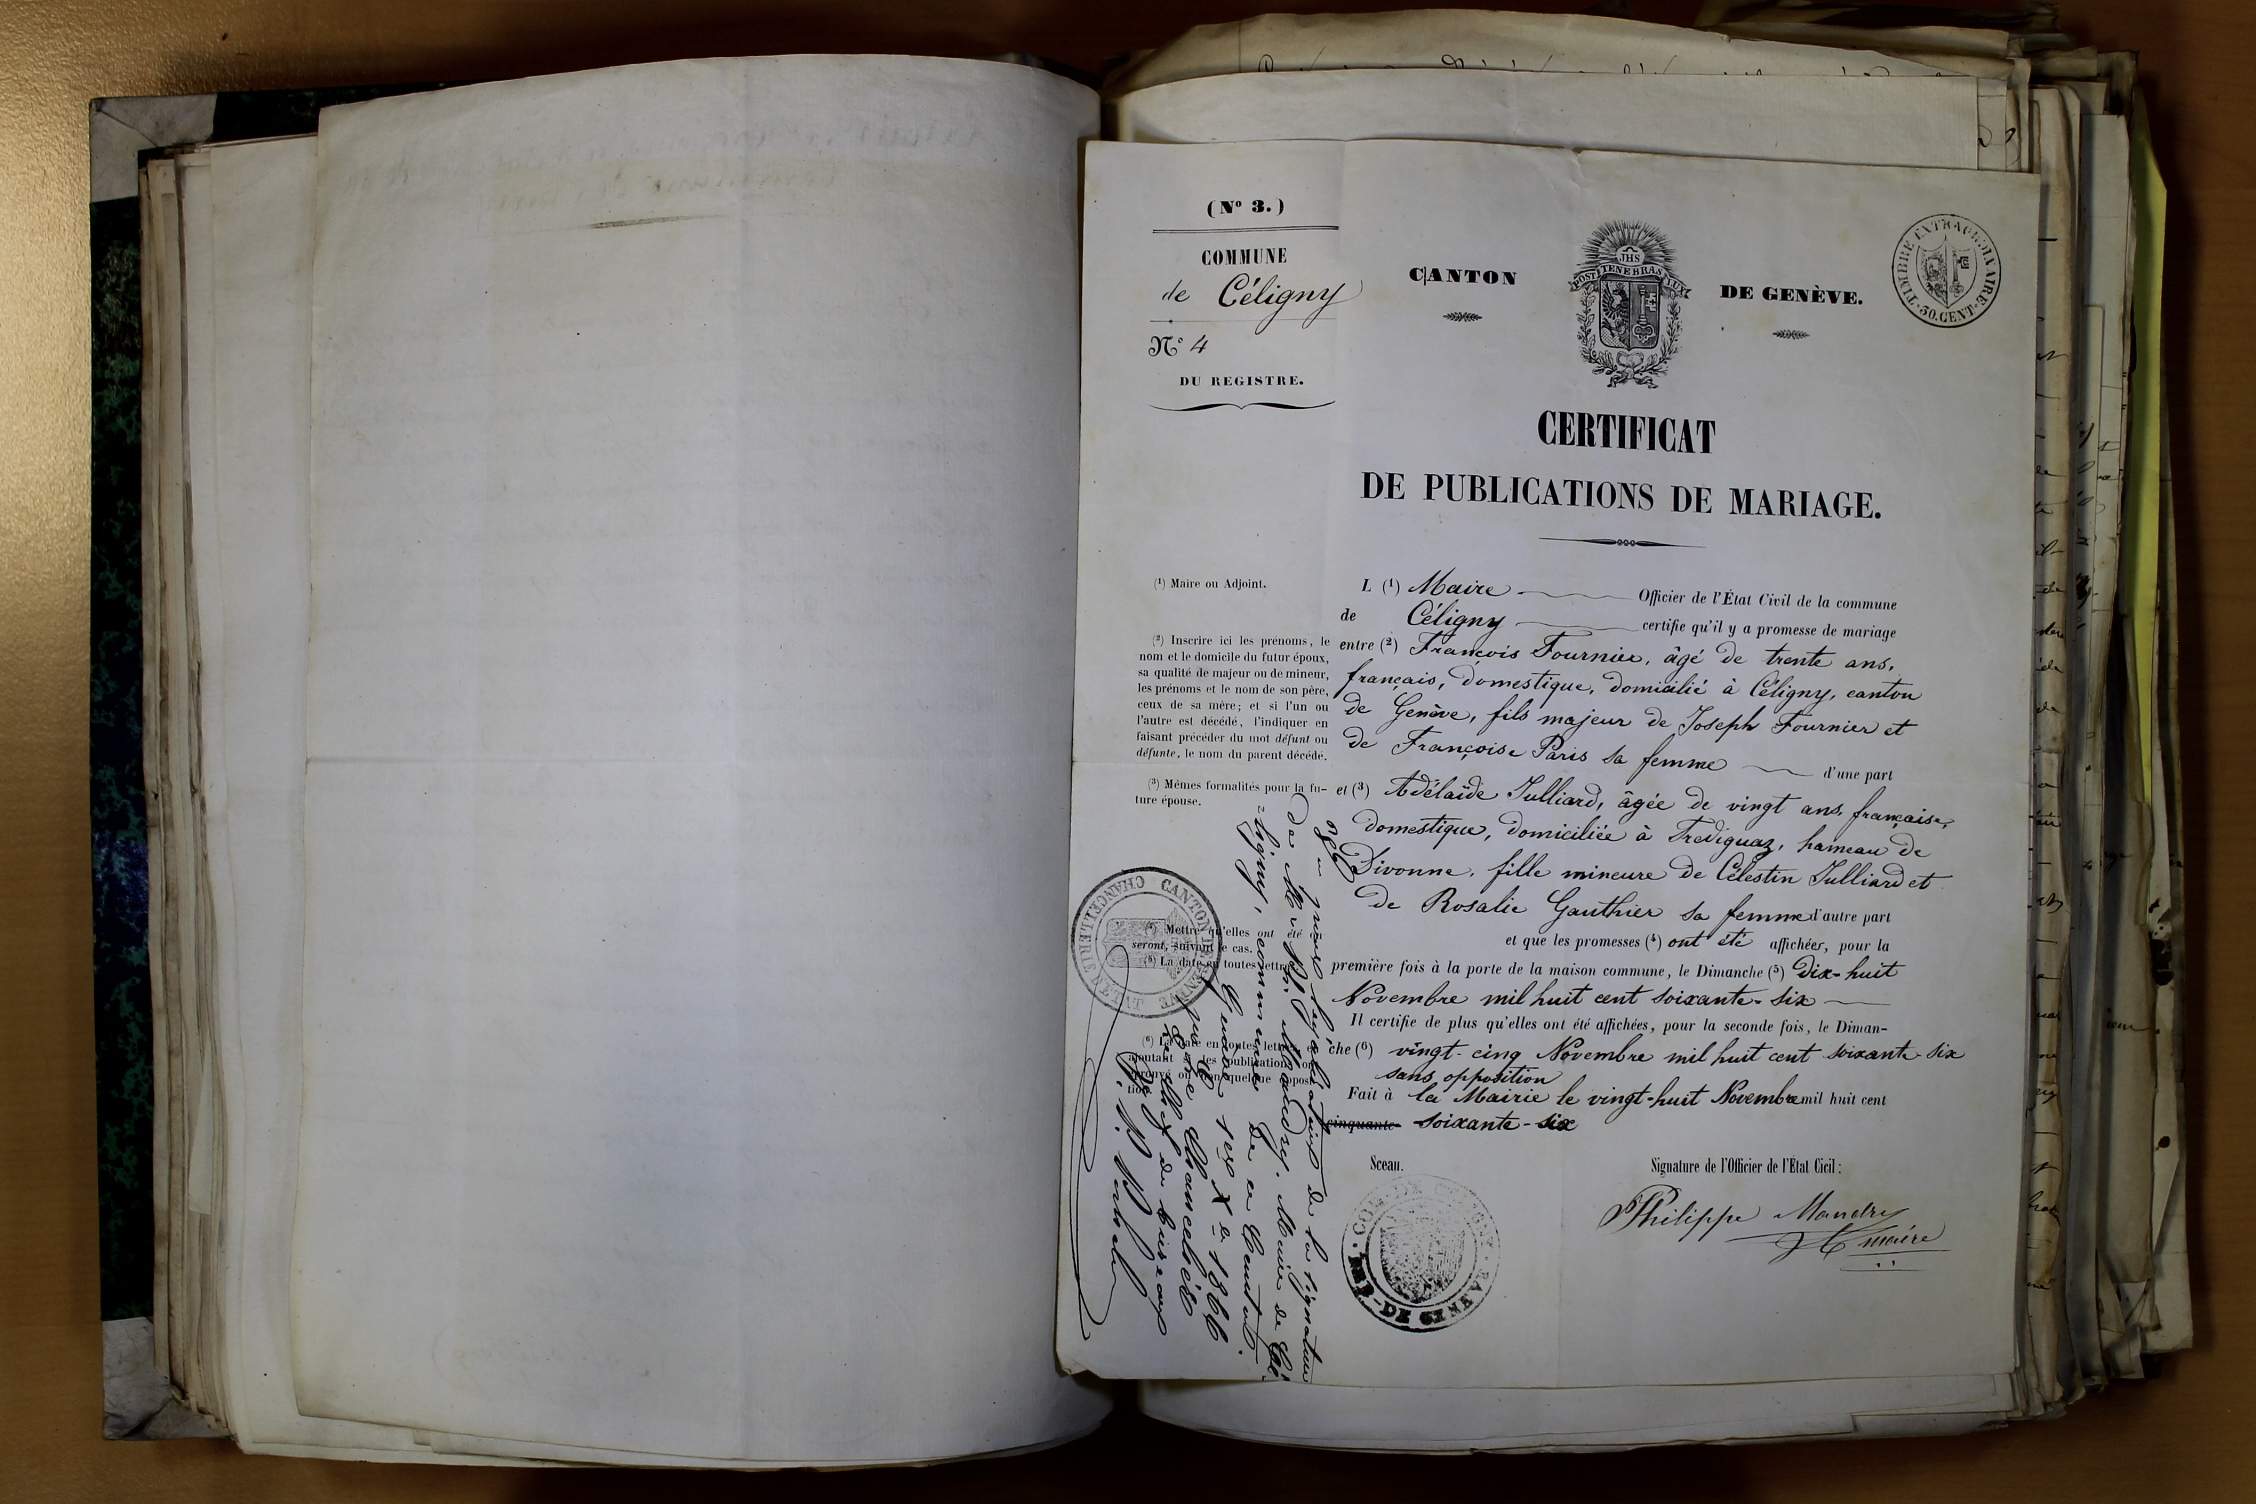 (Nº 3.)
COMMUNE
de Céligny
Nº 4
DU REGISTRE.
CANTON
JHS
POST TENEBRAS LUX
DE GENÈVE.
TIMBRE EXTRAORDINAIRE
30. CENT.
CERTIFICAT
DE PUBLICATIONS DE MARIAGE.
(1) Maire ou Adjoint.
(2) Inscrire ici les prénoms, le
nom et le domicile du futur époux,
sa qualité de majeur ou de mineur,
les prénoms et le nom de son père,
ceux de sa mère; et si l'un ou
l'autre est décédé, l'indiquer en
faisant précéder du mot défunt ou
défunte, le nom du parent décédé.
(3) Mêmes formalités pour la fu-
ture épouse.
(4) Mettre qu'elles ont été ou
seront, suivant le cas.
(5) La date en toutes lettres.
L (1) Maire Officier de l'État Civil de la commune
de Céligny certifie qu'il y a promesse de mariage
entre (2) François Fournier, âgé de trente ans,
français, domestique, domicilié à Céligny, canton
de Genève, fils majeur de Joseph Fournier et
de Françoise Paris sa femme d'une part
et (3) Adélaïde Julliard, âgée de vingt ans, française,
domestique, domiciliée à Trediguaz, hameau de
Divonne, fille mineure de Célestin Julliard et
de Rosalie Gauthier sa femme d'autre part
et que les promesses (4) ont été affichées, pour la
première fois à la porte de la maison commune, le Dimanche (5) Dix-huit
Novembre mil huit cent soixante-six
Il certifie de plus qu'elles ont été affichées, pour la seconde fois, le Diman-
che (6) vingt-cinq Novembre mil huit cent soixante-six
sans opposition
Fait à la Mairie le vingt-huit Novembre mil huit cent
cinquante- soixante-six
Sceau.
Signature de l'Officier de l'État Civil:
Philippe Mandry
maire
COM. DE CÉLIGNY
REP. DE GENÈVE
CHANCELLERIE D'ÉTAT
CANTON DE GENÈVE
légalisation de la signature
de Mr Ph. Mandry, Maire de Cé-
ligny, commune de ce Canton.
Genève 1er Xe 1866
Pour la Chancellerie
le chef de bureau